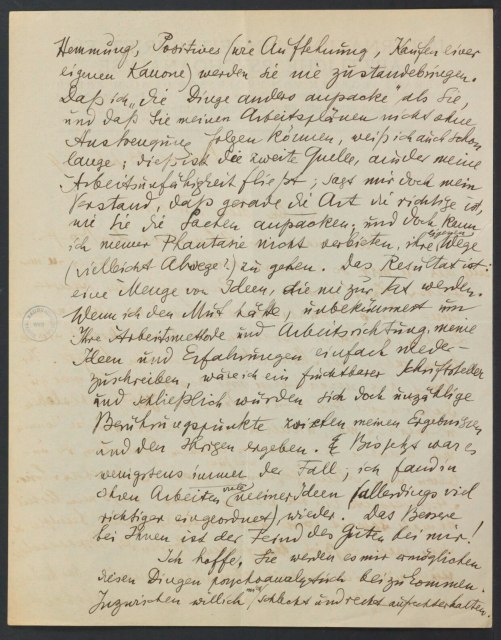 Hemmung, Positives (wie Auflehnung, Kaufen einer
eigenen Kanone) werden sie nie zustandebringen.
Daß ich „die Dinge anders anpacke" als Sie,
und daß Sie meinen Arbeitsplänen nicht ohne
Anstrengung folgen können, weiß ich auch schon
lange; dieß ist die zweite Quelle, aus der meine
Arbeitsunfähigkeit fließt; sagt mir doch mein
Verstand, daß gerade die Art die richtige ist,
wie Sie die Sachen anpacken; und doch kann
ich meiner Phantasie nicht verbieten, ihre eigenen Wege
(vielleicht Abwege?) zu gehen. Das Resultat ist:
eine Menge von Ideen, die nie zur Tat werden.
Wenn ich den Mut hätte, unbekümmert um
Ihre Arbeitsmethode und Arbeitsrichtung, meine
Ideen und Erfahrungen einfach nieder-
zuschreiben, wäre ich ein fruchtbarer Schriftsteller
und schließlich würden sich doch unzählige
Berührungspunkte zwischen meinen Ergebnissen
und den Ihrigen ergeben. Bis jetzt war es
wenigstens immer der Fall; ich fand in
Ihren Arbeiten viele meiner Ideen (allerdings viel
richtiger eingeordnet) wieder. Das Bessere
bei Ihnen ist der Feind des Guten bei mir!
Ich hoffe, Sie werden es mir ermöglichen
diesen Dingen psychoanalytisch beizukommen.
Inzwischen will ich mich schlecht und recht aufrechterhalten